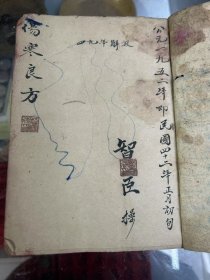 公元一九五二年即民國四十二年正月初旬
四九年解放
智臣
傷寒良方